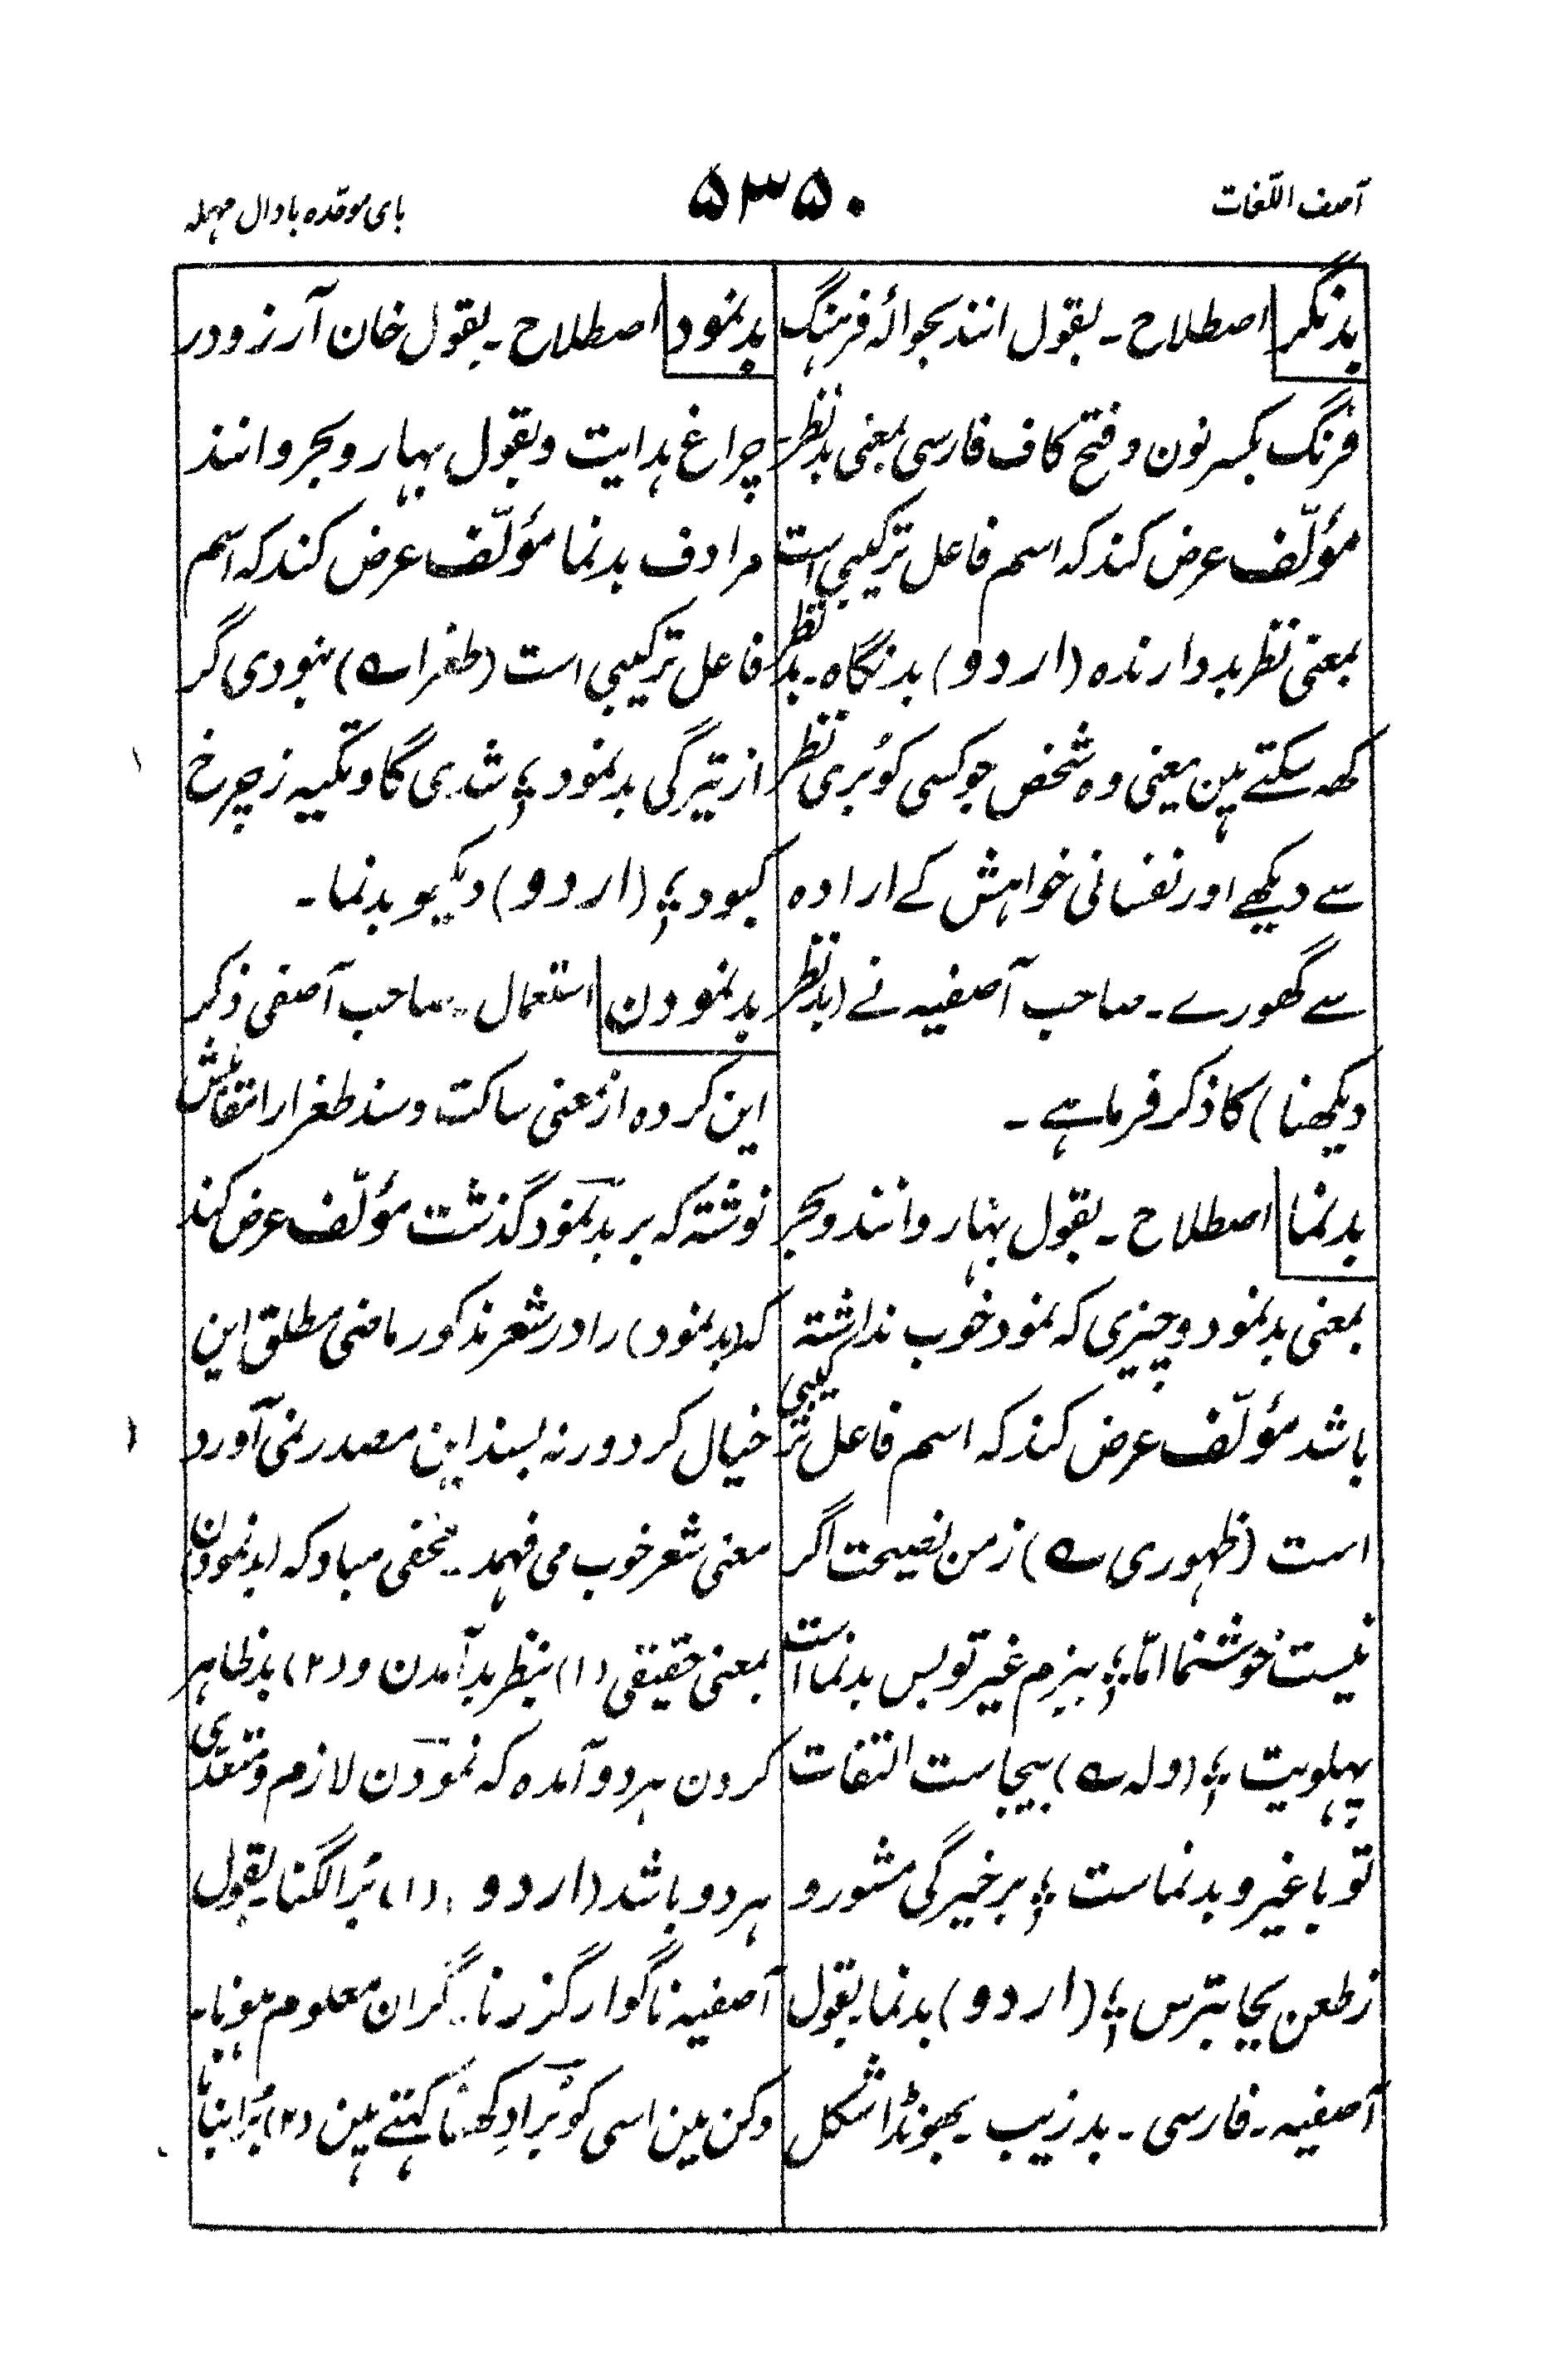 آصف اللّغات
۵۳۵۰
بای موحّده با دال مهمله
بدنگر اصطلاح ۔ بقول انند بحوالہ فرہنگ
فرنگ بکسر نون و فتح کاف فارسی بمعنی بدنظر
مؤلّف عرض کند کہ اسم فاعل ترکیبی است
بمعنی نظر بد دارندہ (اردو) بدنگاہ ۔ بدنظر
کھہ سکتے ہین یعنی وہ شخص جو کسی کو بُری نظر
سے دیکھے اور نفسانی خواہش کے ارادہ
سے گھورے ۔ صاحب آصفیہ نے (بدنظر
دیکھنا) کا ذکر فرماہے ۔
بدنما اصطلاح ۔ بقول بہار و انند و بحر
بمعنی بدنمود و چیزی کہ نمود خوب نداشتہ
باشد مؤلّف عرض کند کہ اسم فاعل ترکیبی
است (ظہوری ے) ز من نصیحت اگر
نیست خوشنما امّا ؛ بہزم غیر تو بس بدنما است
پہلویت ؛ (ولہ ے) بیجاست التفات
تو با غیر و بدنماست ؛ بر خیرگی مشورو
ز طعن بجا بترس ؛ (اردو) بدنما بقول
آصفیہ ۔ فارسی ۔ بدزیب ۔ بھونڈا شکل
بدنمود اصطلاح ۔ بقول خان آرزو در
چراغ ہدایت و بقول بہار و بحر و انند
مرادف بدنما مؤلّف عرض کند کہ اسم
فاعل ترکیبی است (طغرا ے) نبودی گر
از تیرگی بدنمود ؛ شدی گاو تکیہ ز چرخ
کبود ؛ (اردو) دیکھو بدنما ۔
بدنمودن استعمال ۔ صاحب آصفی ذکر
این کردہ از معنی ساکت و سند طغرا را نقلش
نوشتہ کہ بر بدنمود گذشت مؤلّف عرض کند
کہ (بدنمود) را در شعر مذکور ماضی مطلق این
خیال کرد ورنہ بسند این مصدر نمی آورد
معنی شعر خوب می فہمد ۔ مخفی مباد کہ (بدنمودن)
بمعنی حقیقی (۱) بنظر بد آمدن و (۲) بد ظاہر
کردن ہر دو آمدہ کہ نمودن لازم و متعدّی
ہر دو باشد (اردو) (۱) بُرا لگنا بقول
آصفیہ ناگوار گزرنا ۔ گران معلوم ہونا ۔
دکن مین اسی کو بُرا دِکھنا کہتے ہین (۲) بُرا بنانا